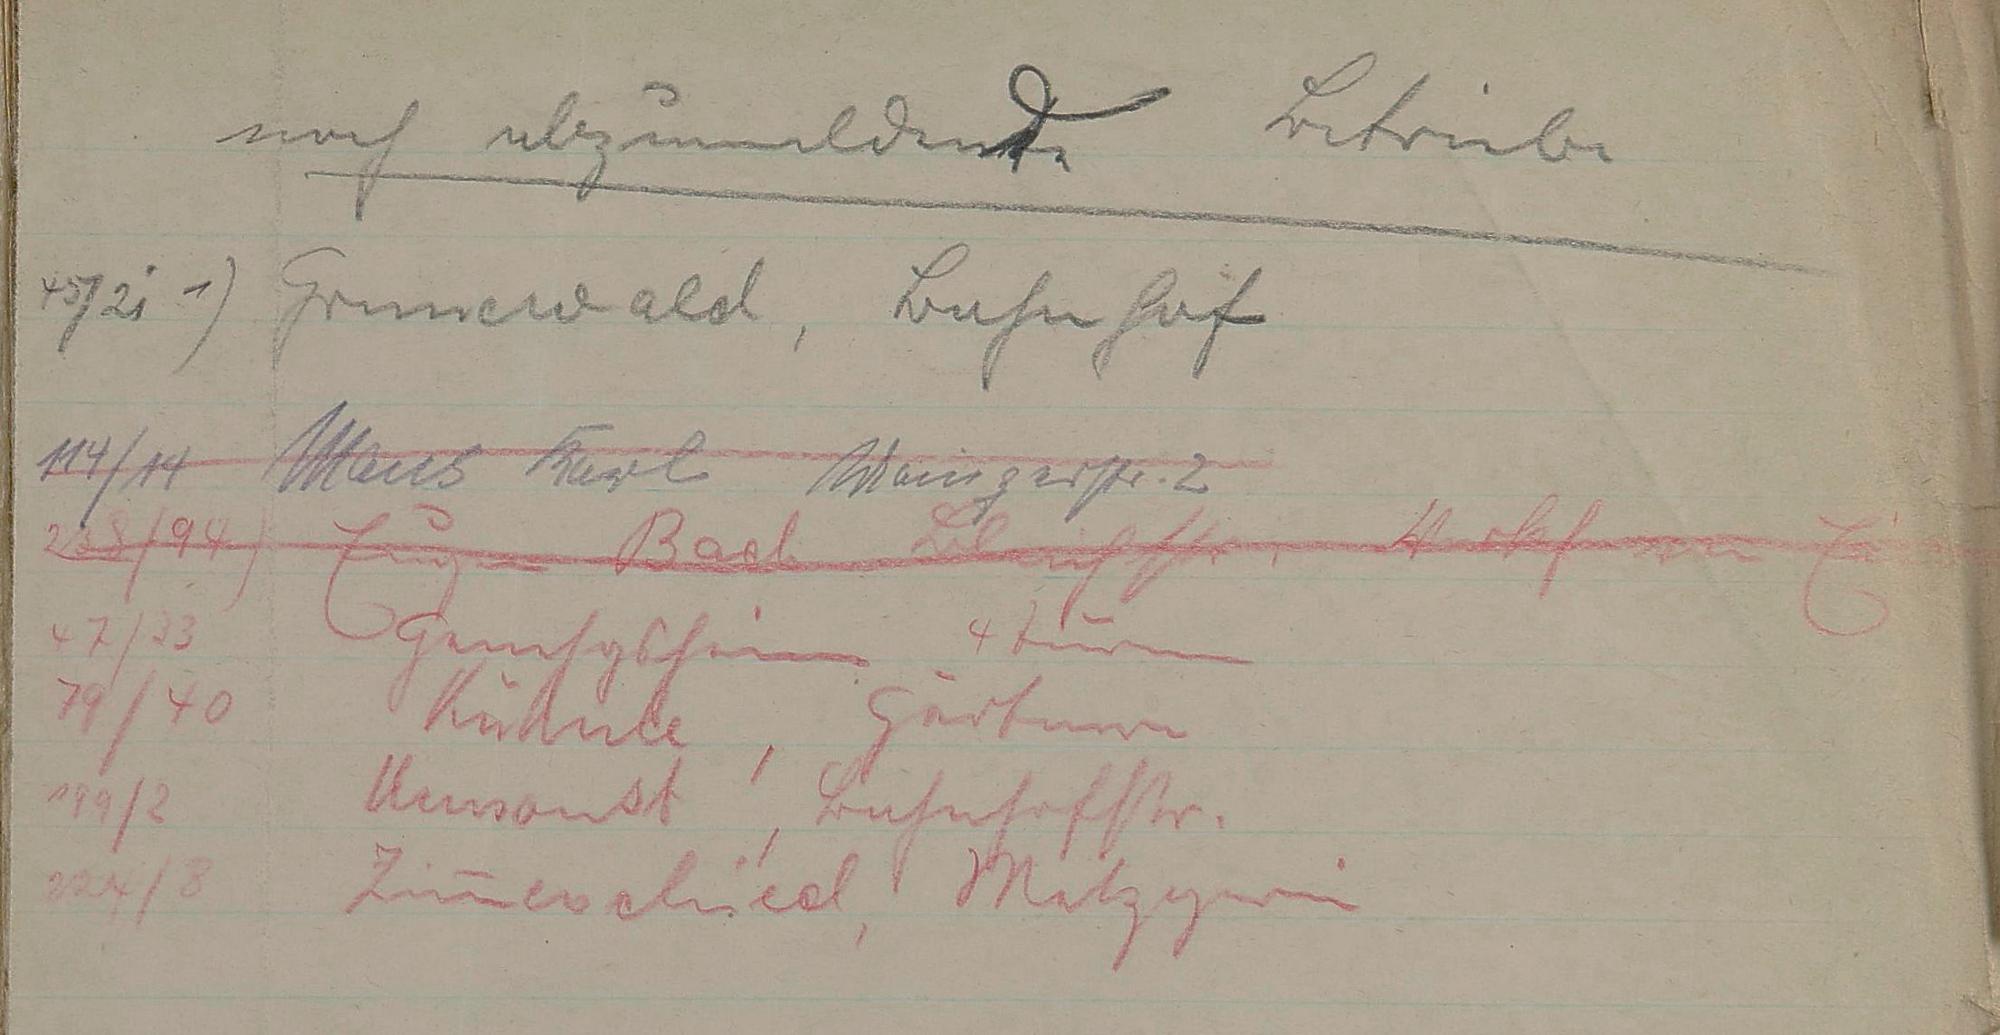 noch abzumeldende Betriebe
45/2i 1) Grunewald, Bahnhof
114/14 Maus Karl Mainzerstr. 2
228/94) Eugen Bach
47/33 4 Türme
79/40 Kühnle, Gärtner
199/2 Umsonst, Bahnhofstr.
224/8 Zimerschied, Metzgerei